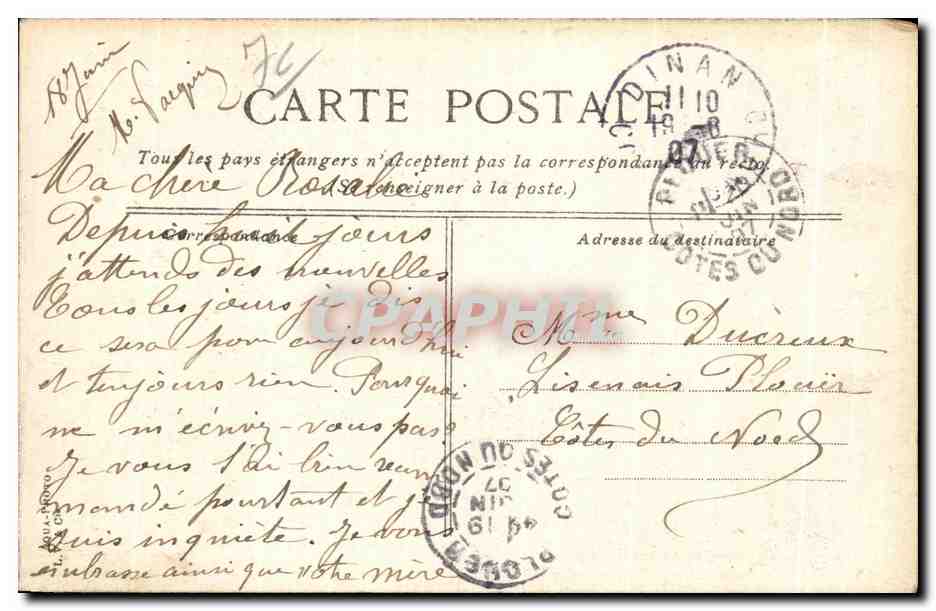 18 Juin
CARTE POSTALE
Tous les pays étrangers n'acceptent pas la correspondance au recto
(Se renseigner à la poste.)
Correspondance
Adresse du destinataire
Ma chère Rosalie
Depuis huit jours
j'attends des nouvelles
Tous les jours je dis
ce sera pour aujourd'hui
et toujours rien. Pourquoi
ne m'écrivez-vous pas?
Je vous l'ai bien recom
mandé pourtant et je
suis inquiète. Je vous
embrasse ainsi que votre mère
Mme Ducreux
Plouër
Côtes du Nord
DINAN C. DU NORD
11 10
19 -6
07
PLOUER
JUIN
07
COTES DU NORD
PLOUER
19
JUIN
07
COTES DU NORD
AQUA-PHOTO
CPAPHIL